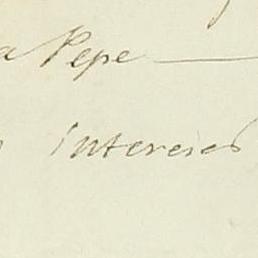 a Pepe —
intereses